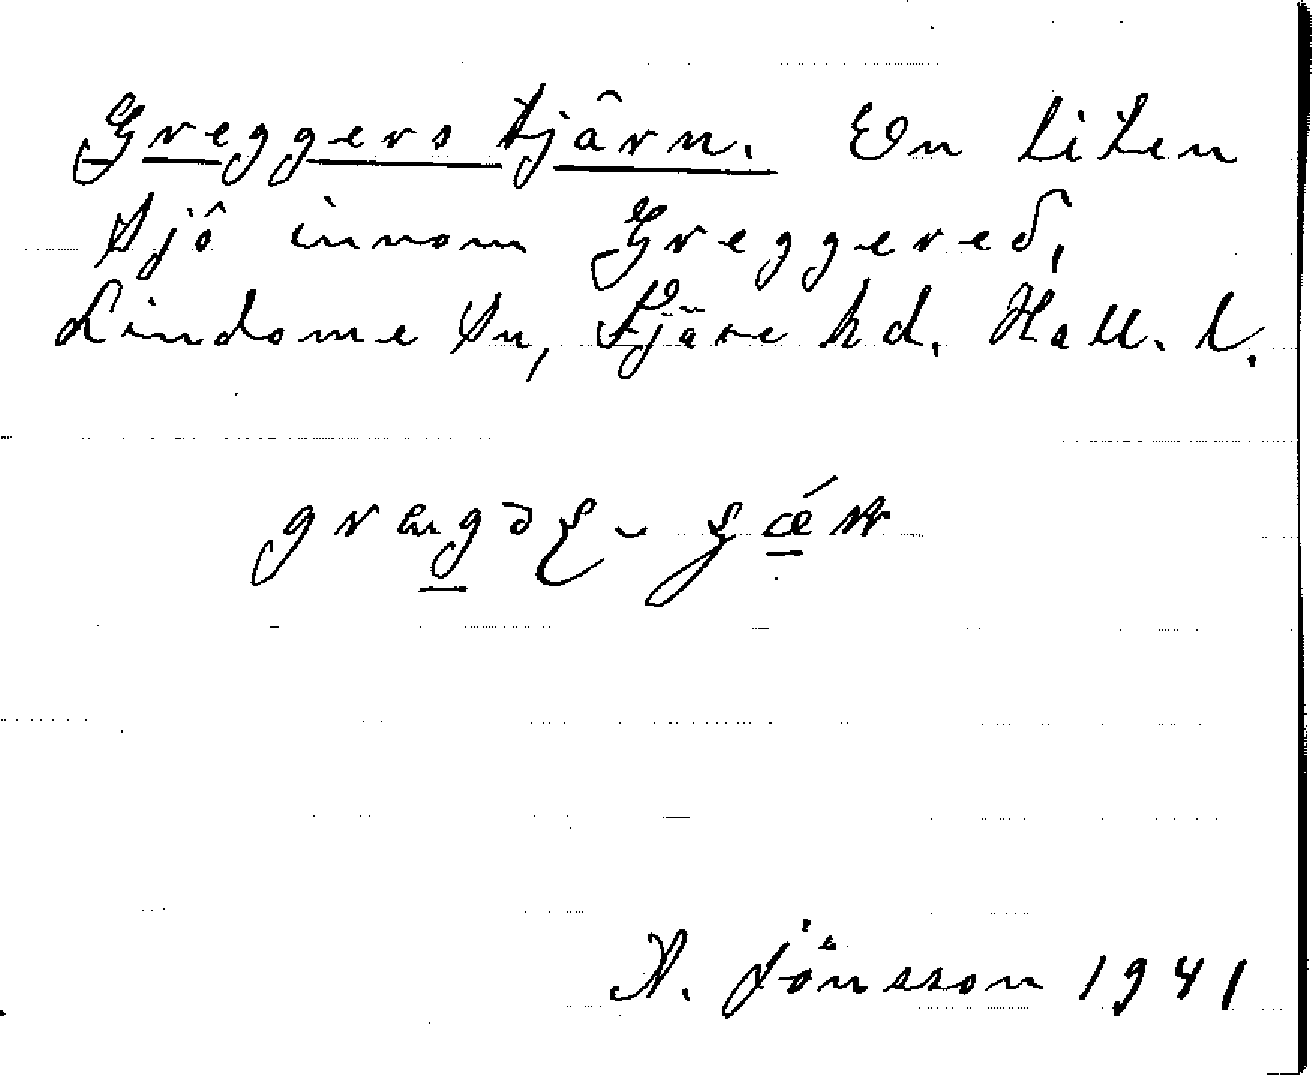 Greggers tjärn. En liten
sjö innom Greggered,
Lindome sn, Fjäre hd. Hall. l.
A. Jönsson 1941